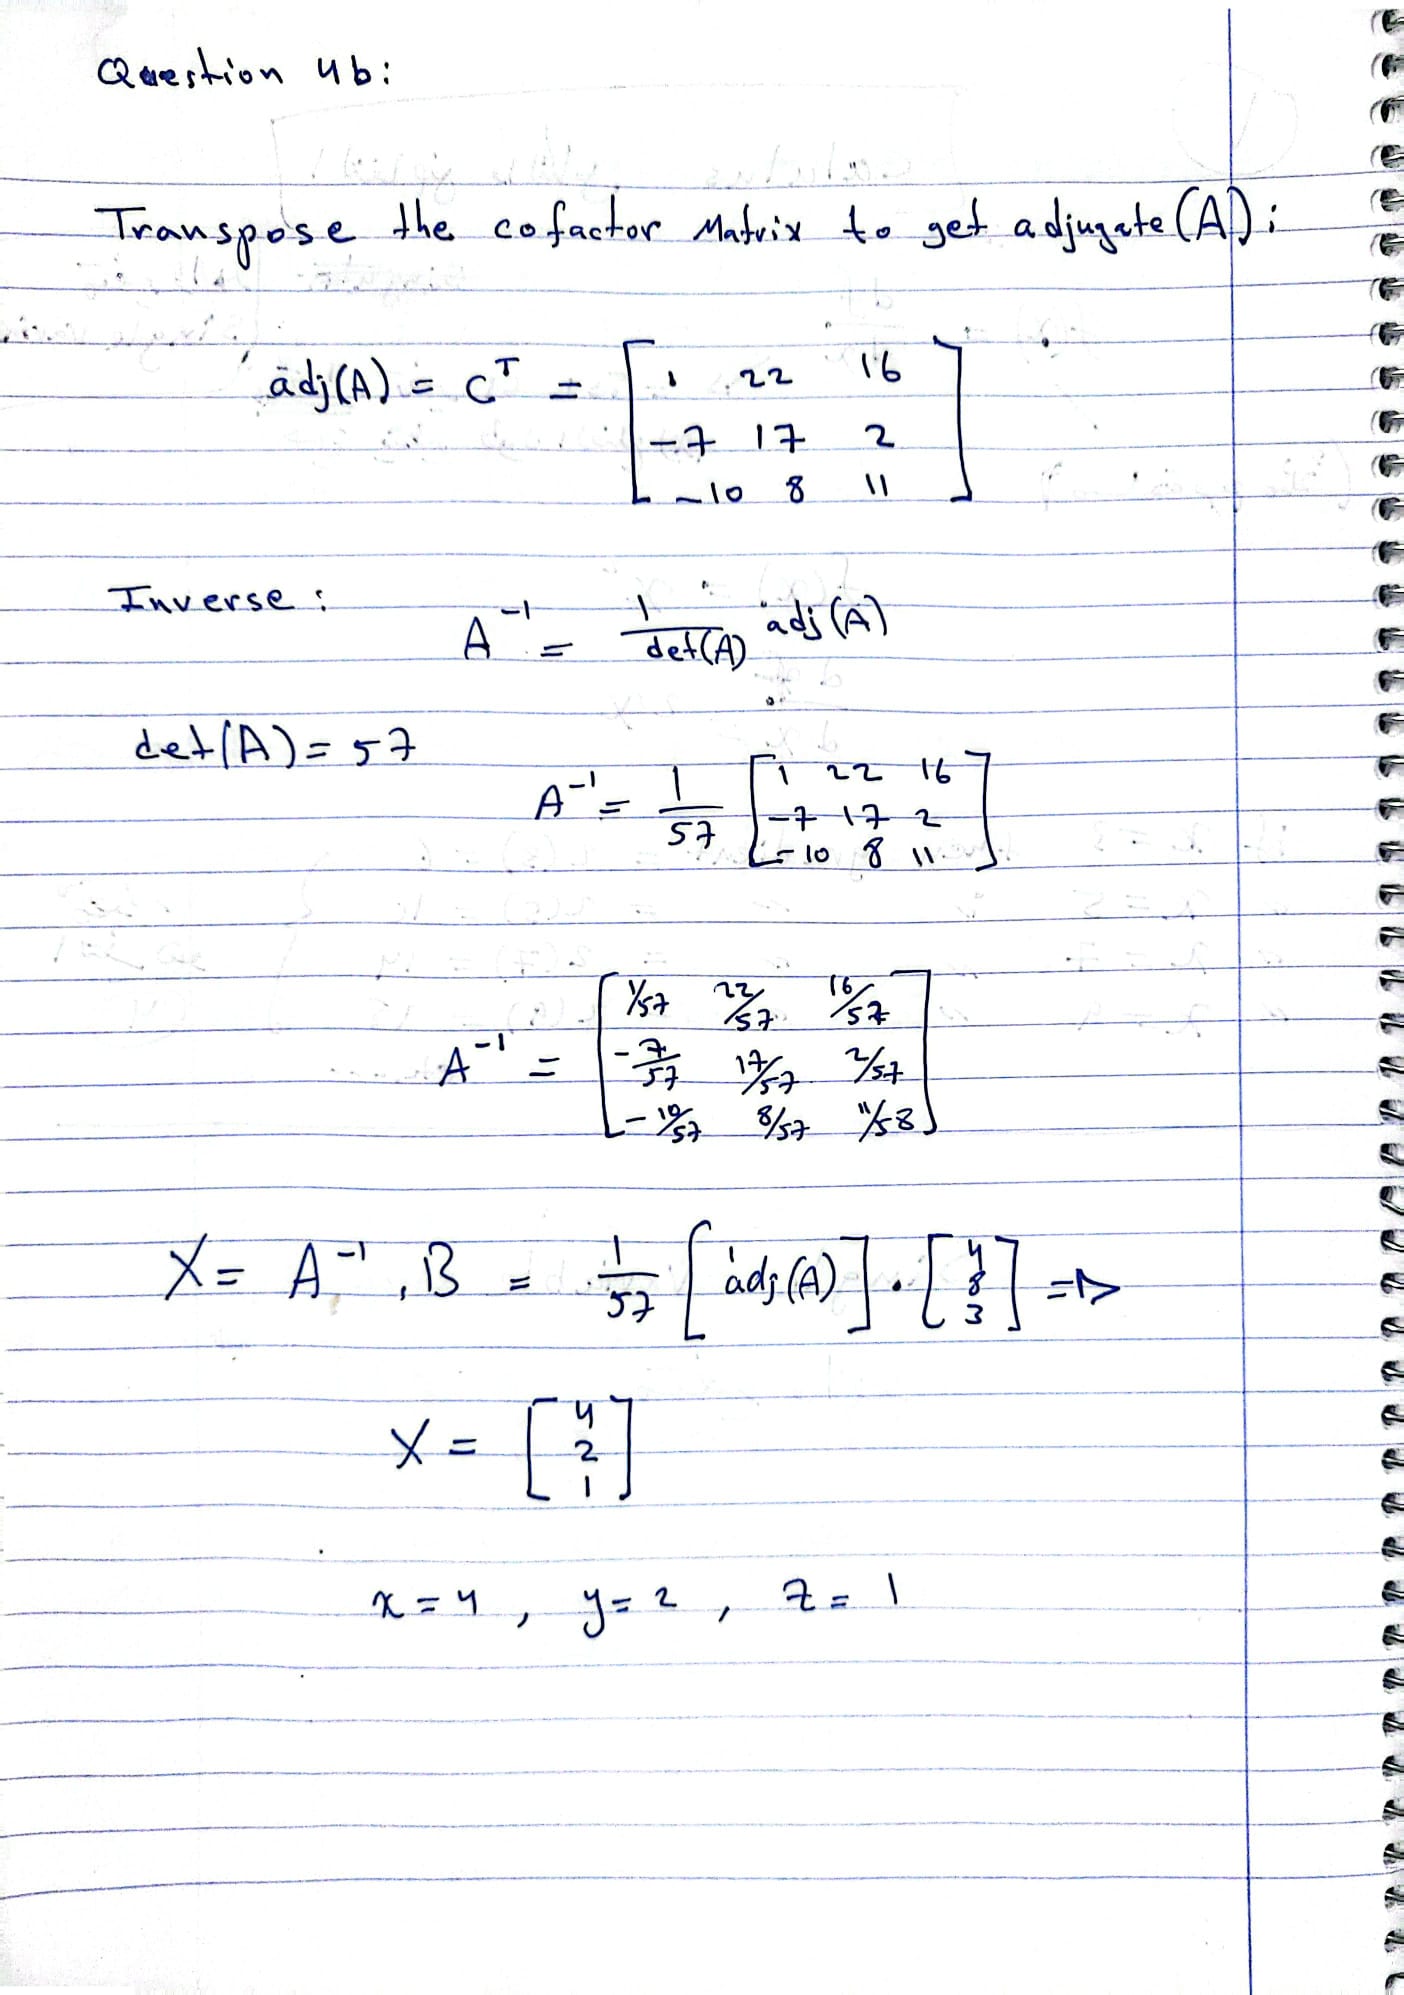 Question 4b:
Transpose the cofactor Matrix to get adjugate(A):
adj(A) = C^T = [ 1 22 16
-7 17 2
-10 8 11 ]
Inverse:
A^-1 = 1/det(A) adj(A)
det(A) = 57
A^-1 = 1/57 [ 1 22 16
-7 17 2
-10 8 11 ]
A^-1 = [ 1/57 22/57 16/57
-7/57 17/57 2/57
-10/57 8/57 11/58 ]
X = A^-1 . B = 1/57 [ adj(A) ] . [ 4 8 3 ] =>
X = [ 4
2
1 ]
x = 4 , y = 2 , z = 1